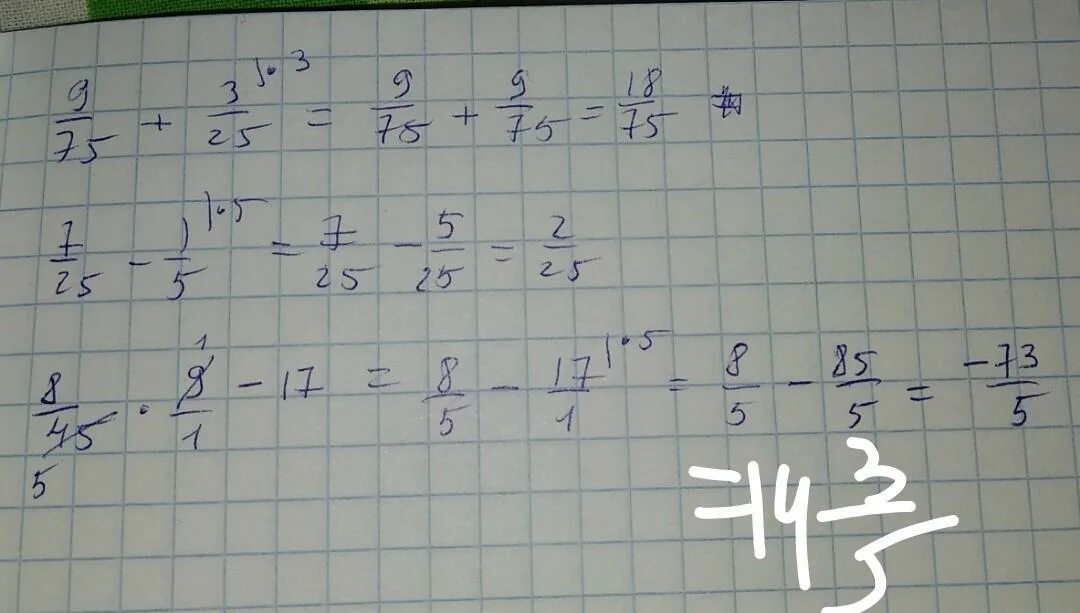 9/75 + 3/25 |·3 = 9/75 + 9/75 = 18/75
7/25 - 1/5 |·5 = 7/25 - 5/25 = 2/25
1
8/45 · 9/1 - 17 = 8/5 - 17/1 |·5 = 8/5 - 85/5 = -73/5
5
=14 3/5